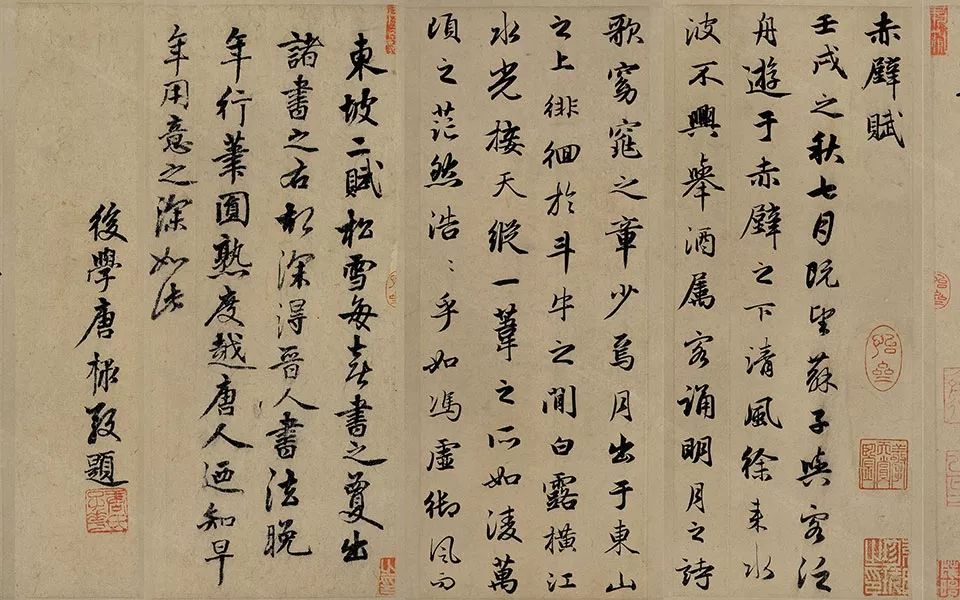 赤壁賦
壬戌之秋七月既望蘇子與客泛
舟遊于赤壁之下清風徐來水
波不興舉酒属客誦明月之詩
歌窈窕之章少焉月出于東山
之上徘徊於斗牛之間白露橫江
水光接天縱一葦之所如凌萬
頃之茫然浩〻乎如馮虛御風而
東坡二賦松雪每喜書之夐出
諸書之右深得晉人書法晚
年行筆圓熟度越唐人迺知早
年用意之深如此
後學唐棣敬題